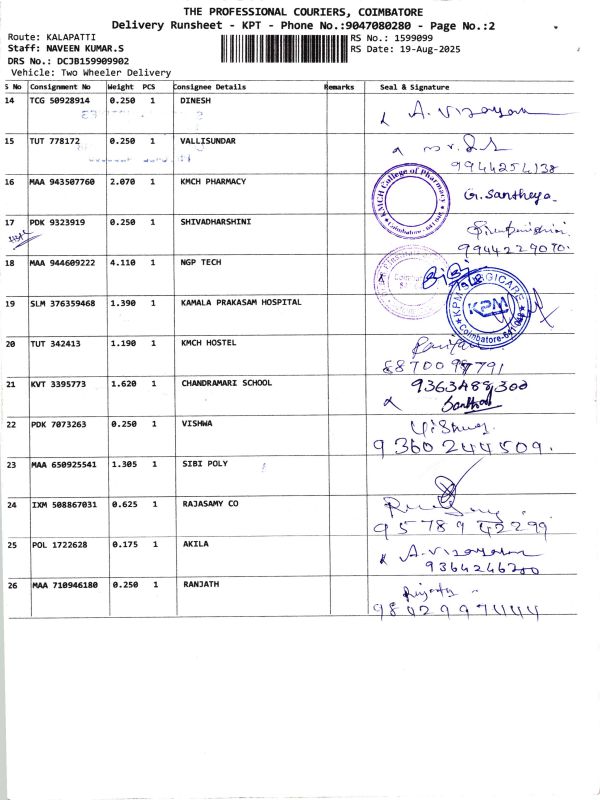 THE PROFESSIONAL COURIERS, COIMBATORE
Delivery Runsheet - KPT - Phone No.:9047080280 - Page No.:2
Route: KALAPATTI
RS No.: 1599099
Staff: NAVEEN KUMAR.S
RS Date: 19-Aug-2025
DRS No.: DCJB159909902
Vehicle: Two Wheeler Delivery
S No Consignment No Weight PCS Consignee Details Remarks Seal & Signature
14 TCG 50928914 0.250 1 DINESH A. Vizayan
15 TUT 778172 0.250 1 VALLISUNDAR
9944254138
16 MAA 943507760 2.070 1 KMCH PHARMACY G. Santheya
KMCH College of Pharmacy
Coimbatore - 641 048
17 PDK 9323919 0.250 1 SHIVADHARSHINI
9944229070.
18 MAA 944609222 4.110 1 NGP TECH
19 SLM 376359468 1.390 1 KAMALA PRAKASAM HOSPITAL
KPM SURGICARE
KPM
Coimbatore-641048
20 TUT 342413 1.190 1 KMCH HOSTEL
21 KVT 3395773 1.620 1 CHANDRAMARI SCHOOL 9363488300
Santhosh
22 PDK 7073263 0.250 1 VISHWA
9360244509.
23 MAA 650925541 1.305 1 SIBI POLY
24 IXM 508867031 0.625 1 RAJASAMY CO
9578942299
25 POL 1722628 0.175 1 AKILA A. Vizayan
9364246200
26 MAA 710946180 0.250 1 RANJATH
9842997444